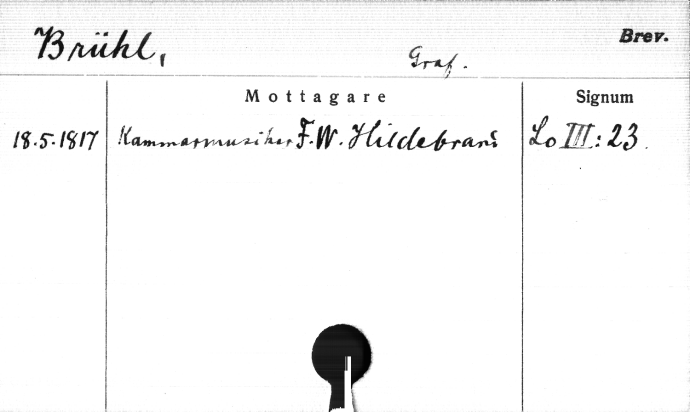 Brühl, Graf. Brev.
Mottagare Signum
18.5.1817 Kammarmusiker F.W. Hildebrand Lo III:23.